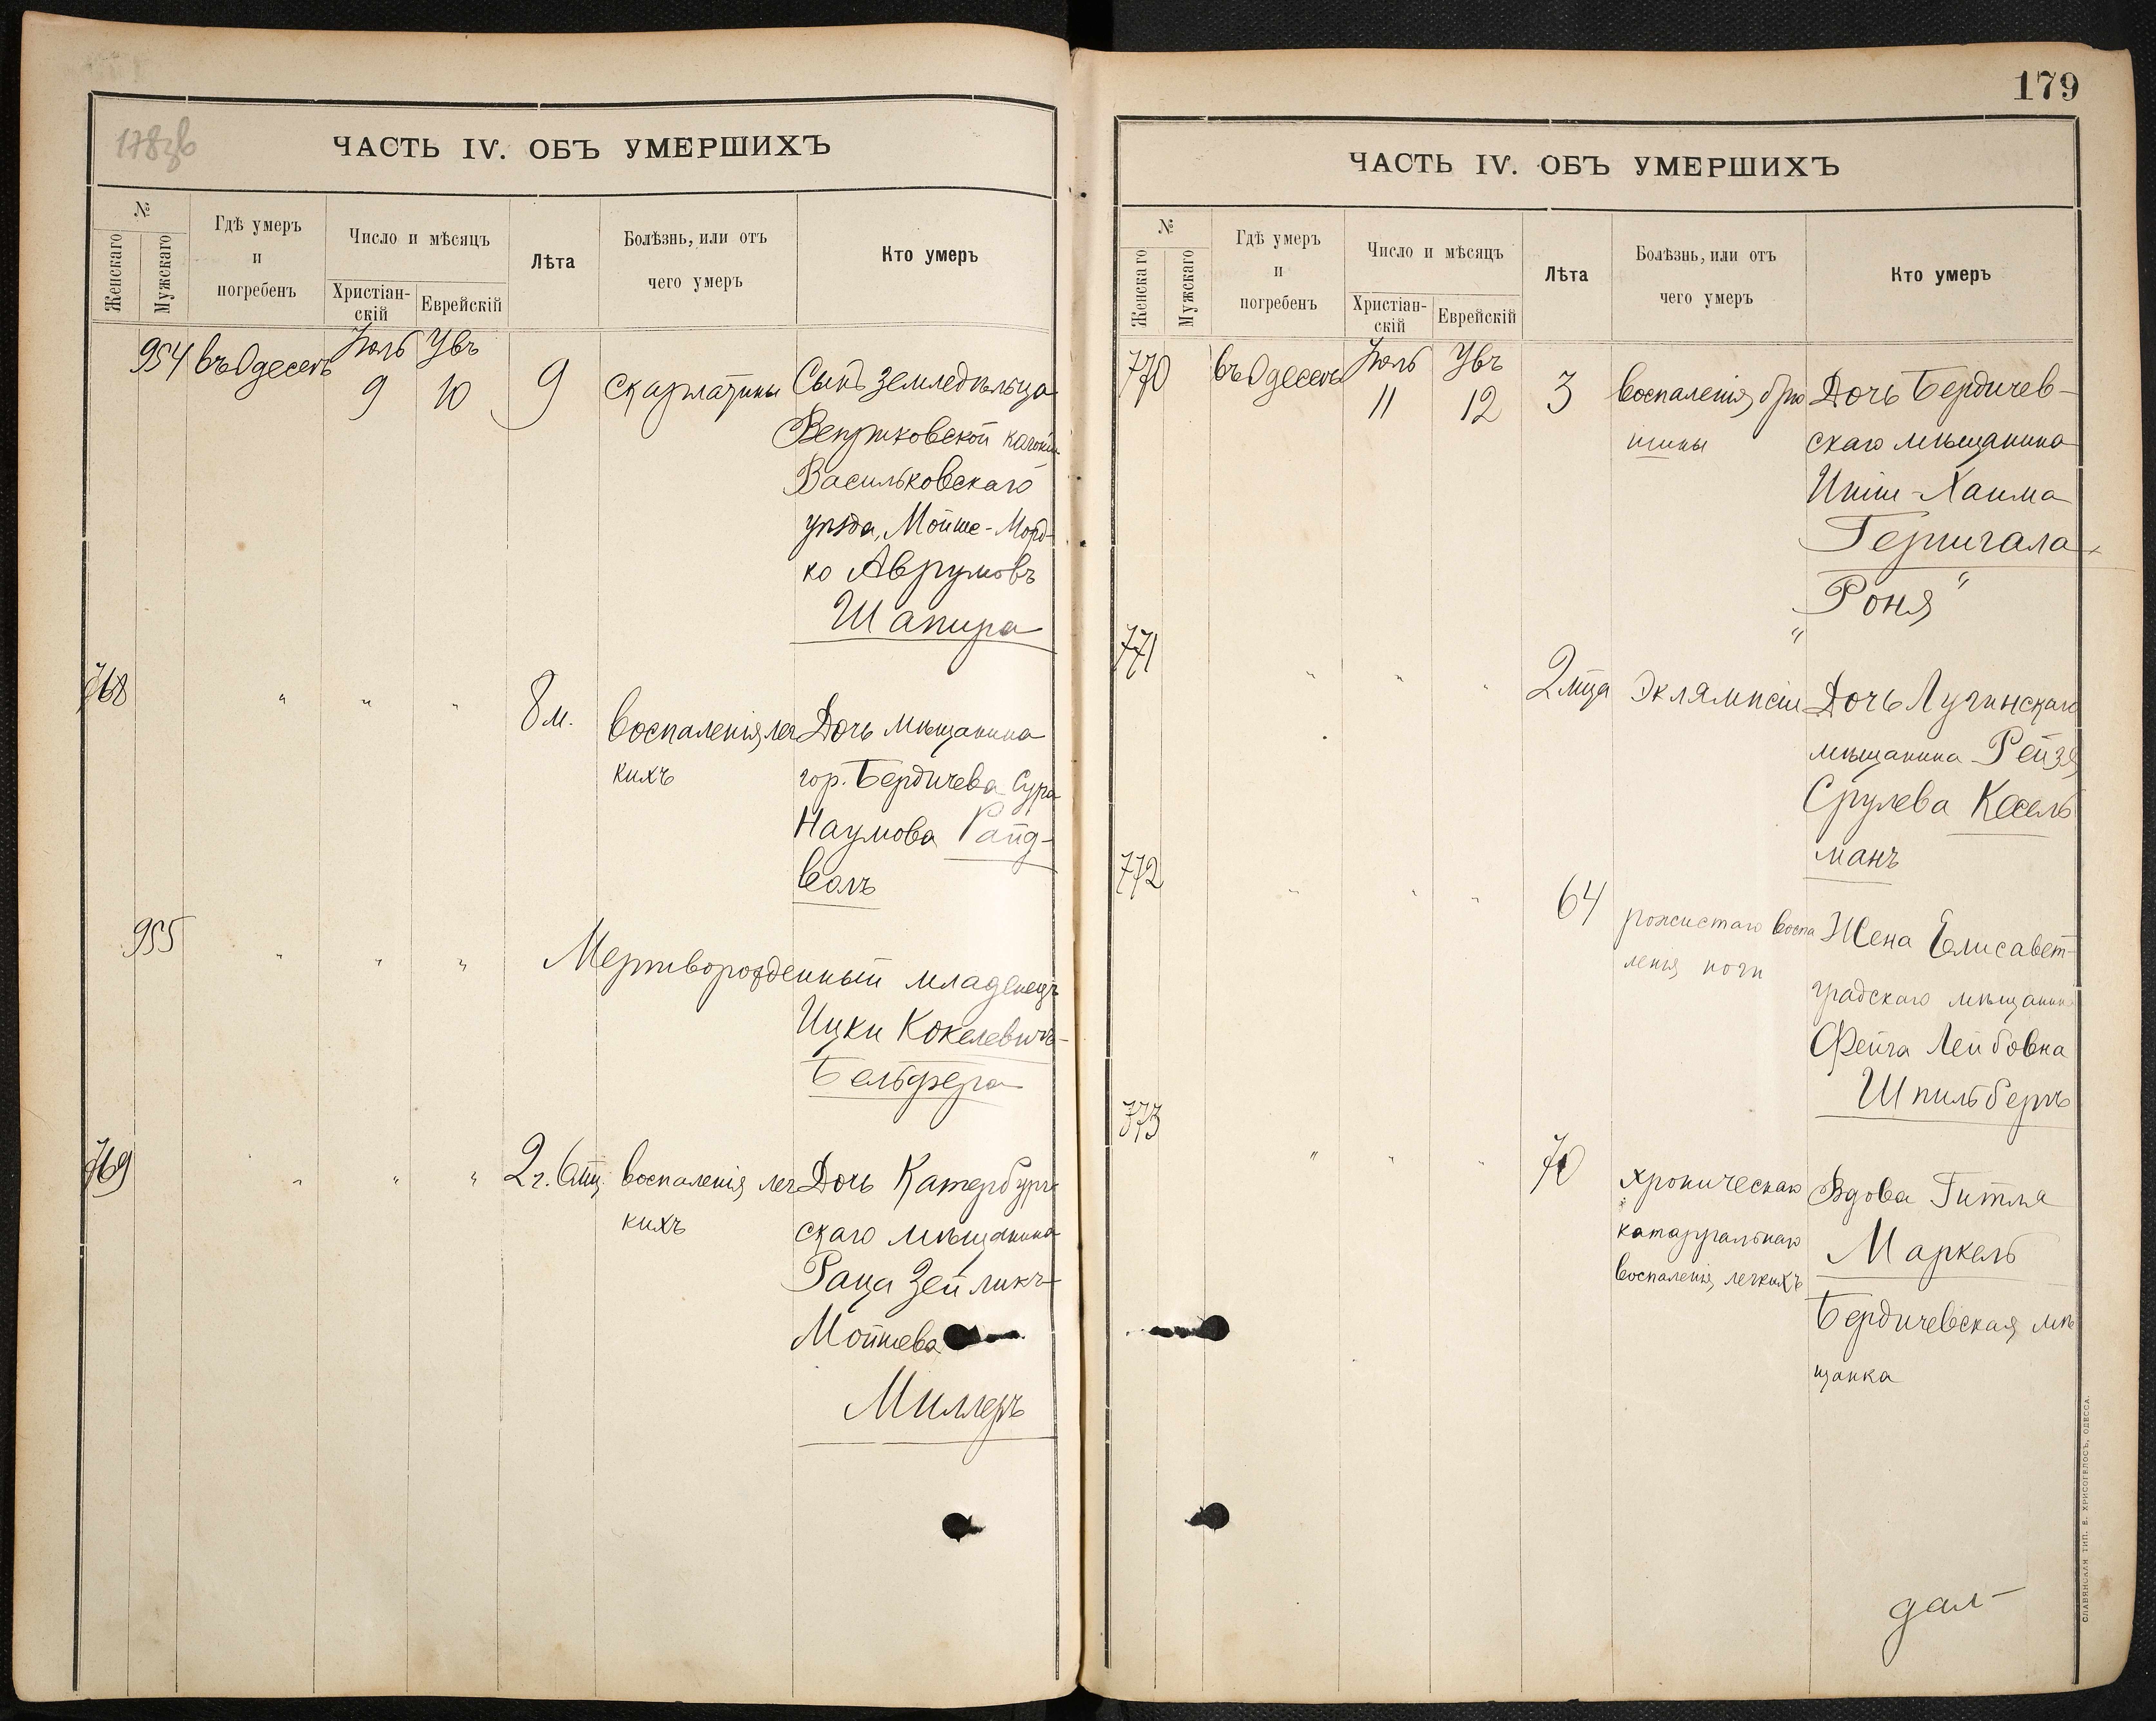 178зв
ЧАСТЬ IV. ОБЪ УМЕРШИХЪ
№
Женскаго
Мужскаго
Гдѣ умеръ
и
погребенъ
Число и мѣсяцъ
Христіан-
скій
Еврейскій
Лѣта
Болѣзнь, или отъ
чего умеръ
Кто умеръ
954 въ Одессѣ Іюль 9 10 9 скарлатины Сынъ земледѣльца
Васильковскаго
уѣзда, Мойше-Морд-
ко Аврумовъ
Шапира
768 " " " 8 м. воспаленія лег Дочь мѣщанина
кихъ гор. Бердичева Сура
Наумова
955 " " " Мертворожденный младенецъ
Ицки
Бельфера
769 " " " 2 г. 6 мц. воспаленія лег Дочь Катербург
кихъ скаго мѣщанина
Раца Зейликъ-
Мошева
Миллеръ
179
ЧАСТЬ IV. ОБЪ УМЕРШИХЪ
№
Женскаго
Мужскаго
Гдѣ умеръ
и
погребенъ
Число и мѣсяцъ
Христіан-
скій
Еврейскій
Лѣта
Болѣзнь, или отъ
чего умеръ
Кто умеръ
770 въ Одессѣ Іюль 11 12 3 воспаленія брю Дочь Бердичев-
шины скаго мѣщанина
Хаима
Гершгала
"Роня"
771 " " " 2 мца Эклямпсіи Дочь Лугинскаго
мѣщанина Рейзя
Срулева Кесель
манъ
772 " " " 64 рожистаго воспа Жена Елисавет-
ленія ноги градскаго мѣщанина
Фейга Лейбовна
Шпильбергъ
773 " " " 70 хроническаго Вдова Гитля
катарральнаго Маркель
воспаленія легкихъ
Бердичевская мѣ
щанка
дал-
СЛАВЯНСКАЯ ТИП. Е. ХРИСОГЕЛОСЪ, ОДЕССА.